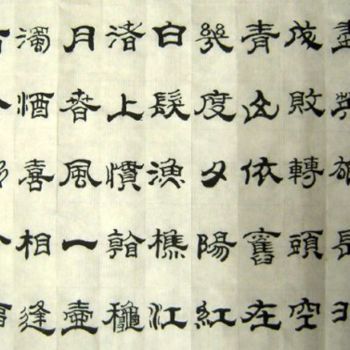 盡英雄是非
成敗轉頭空
青山依舊在
幾度夕陽紅
白髮漁樵江
渚上慣看龝
月春風一壺
濁酒喜相逢